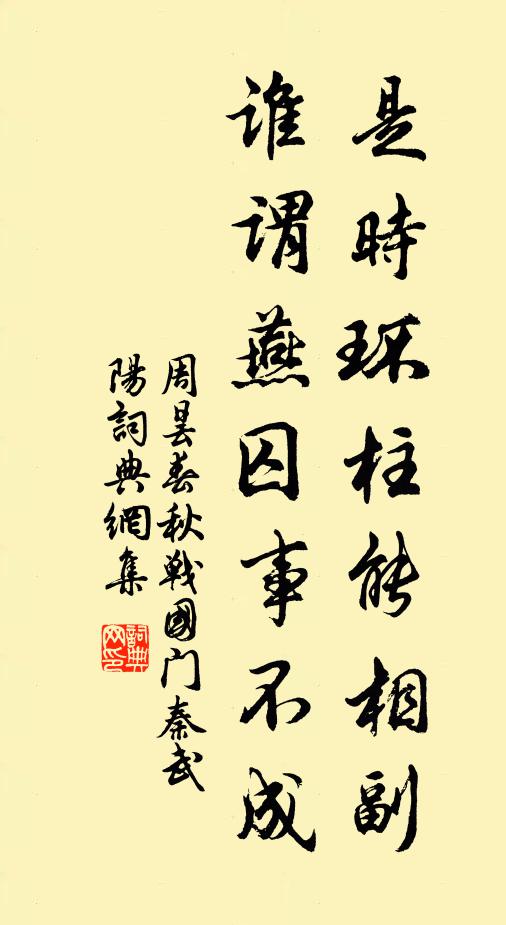 是時环柱能相副
誰謂燕囚事不成
周昙春秋戰國门秦武
陽詞典網集
詞典
网印